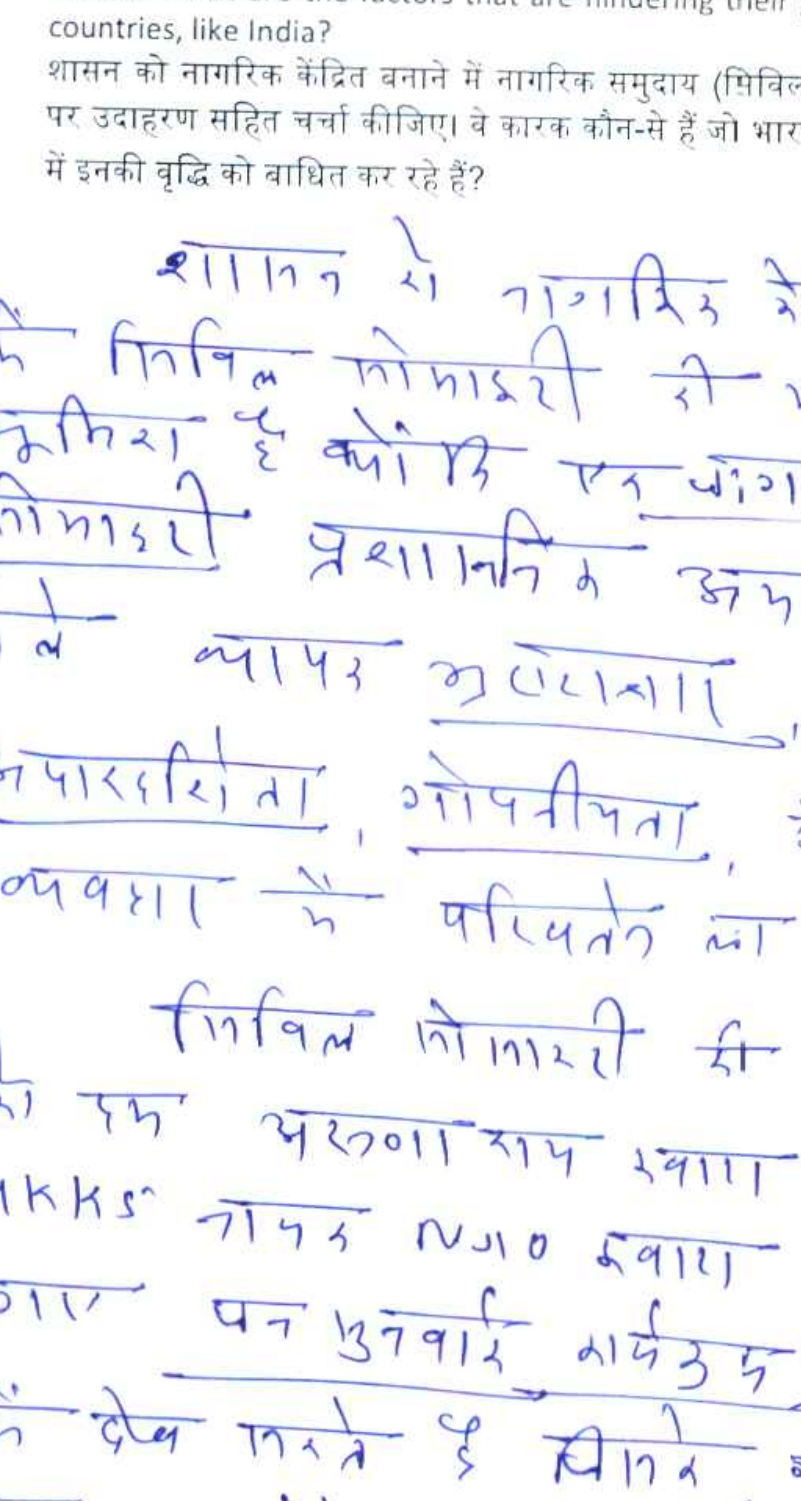 countries, like India?
शासन को नागरिक केंद्रित बनाने में नागरिक समुदाय (सिविल
पर उदाहरण सहित चर्चा कीजिए। वे कारक कौन-से हैं जो भार
में इनकी वृद्धि को बाधित कर रहे हैं?
शासन को नागरिक के
में सिविल सोसाइटी की
भूमिका है क्योंकि एक जाग
सोसाइटी प्रशासनिक
ले व्यापक भ्रष्टाचार,
पारदर्शिता, गोपनीयता,
व्यवस्था में परिवर्तन ला
सिविल सोसाइटी की
को हम अरुणा राय द्वारा
KKS नामक NGO द्वारा
गए जन सुनवाई कार्यक्रम
में देख सकते है जिसके